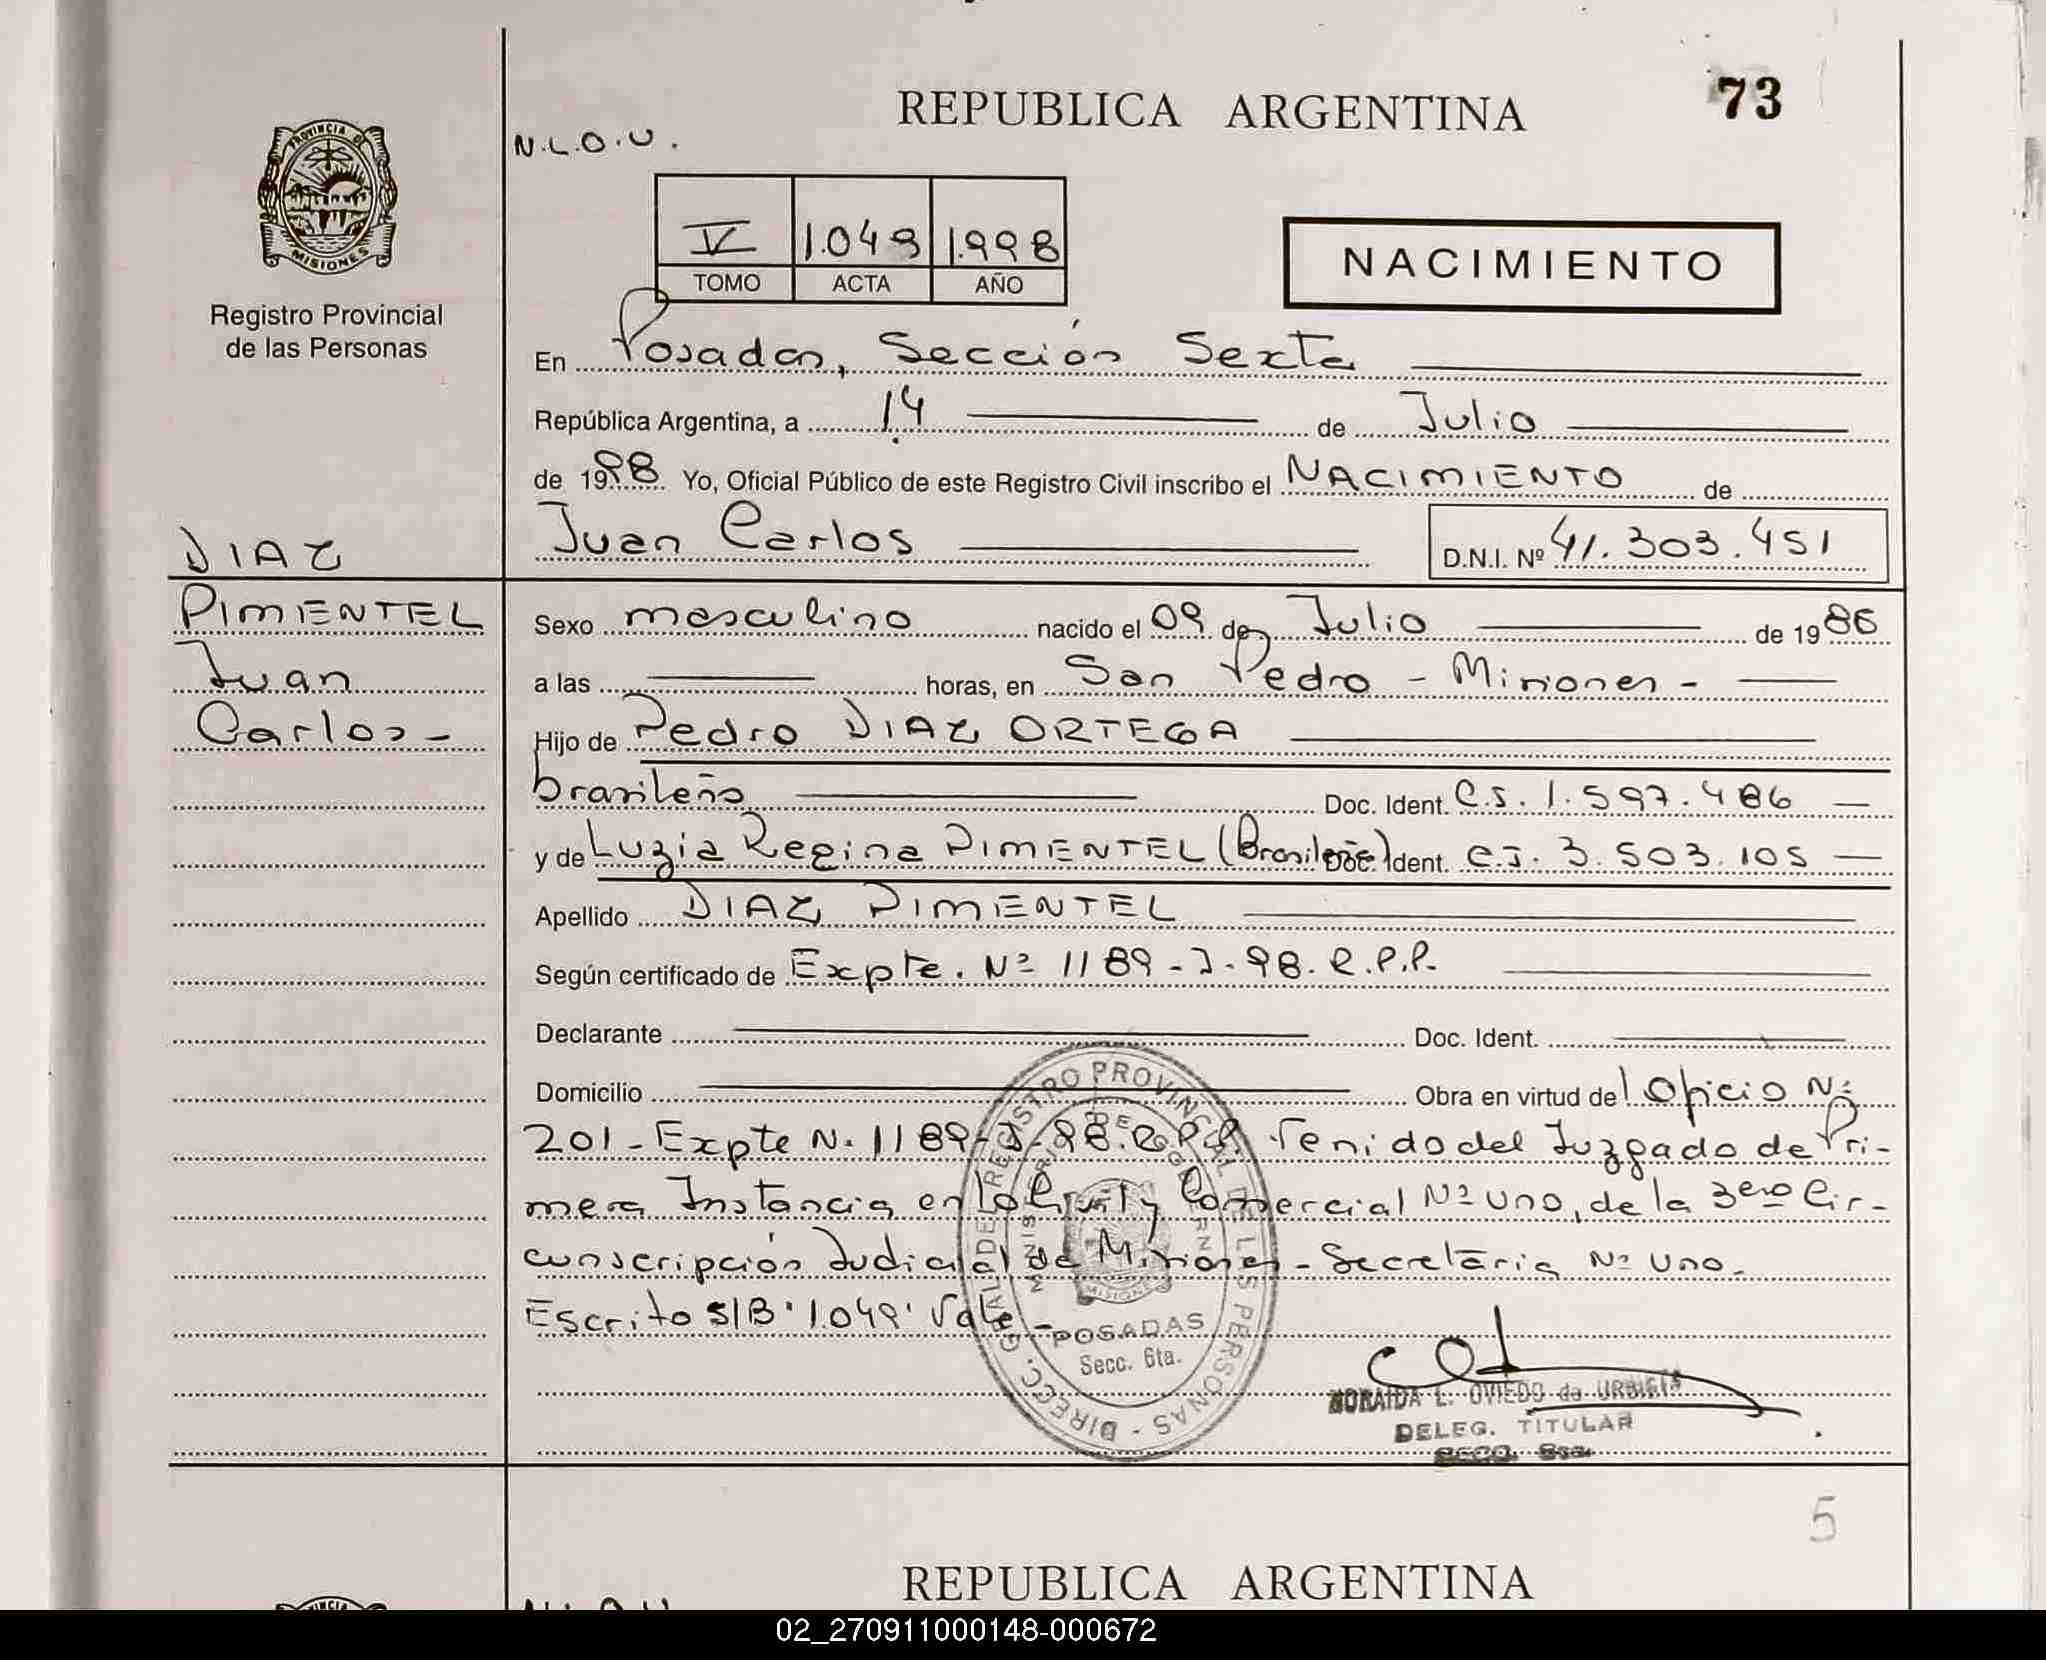 REPUBLICA ARGENTINA
73
PROVINCIA DE
MISIONES
Registro Provincial
de las Personas
N.L.O.U.
V 1.049 1.998
TOMO ACTA AÑO
NACIMIENTO
En Posadas, Sección Sexta
República Argentina, a 14 de Julio
de 1998 Yo, Oficial Público de este Registro Civil inscribo el NACIMIENTO de
Juan Carlos D.N.I. Nº 41.303.451
DIAZ
PIMENTEL
Juan
Carlos -
Sexo masculino nacido el 09 de Julio de 1986
a las horas, en San Pedro - Misiones -
Hijo de Pedro DIAZ ORTEGA
brasileño Doc. Ident. C.I. 1.597.486
y de Luzia Regina PIMENTEL (Brasileña) Doc. Ident. C.I. 3.503.105
Apellido DIAZ PIMENTEL
Según certificado de Expte. Nº 1189-J-98.R.P.P.
Declarante Doc. Ident.
Domicilio Obra en virtud del Oficio Nº
201 - Expte Nº 1189-J-98.R.P.P. Venido del Juzgado de Pri-
mera Instancia en lo Civil y Comercial Nº Uno, de la 3era Cir-
cunscripción Judicial de Misiones - Secretaria Nº Uno.
Escrito S/B "1.049" Vale -
DIRECC. GRAL DE REGISTRO PROVINCIAL DE LAS PERSONAS
POSADAS
Secc. 6ta.
MISIONES
NORAIDA L. OVIEDO de
DELEG. TITULAR
SECC.
5
REPUBLICA ARGENTINA
02_270911000148-000672